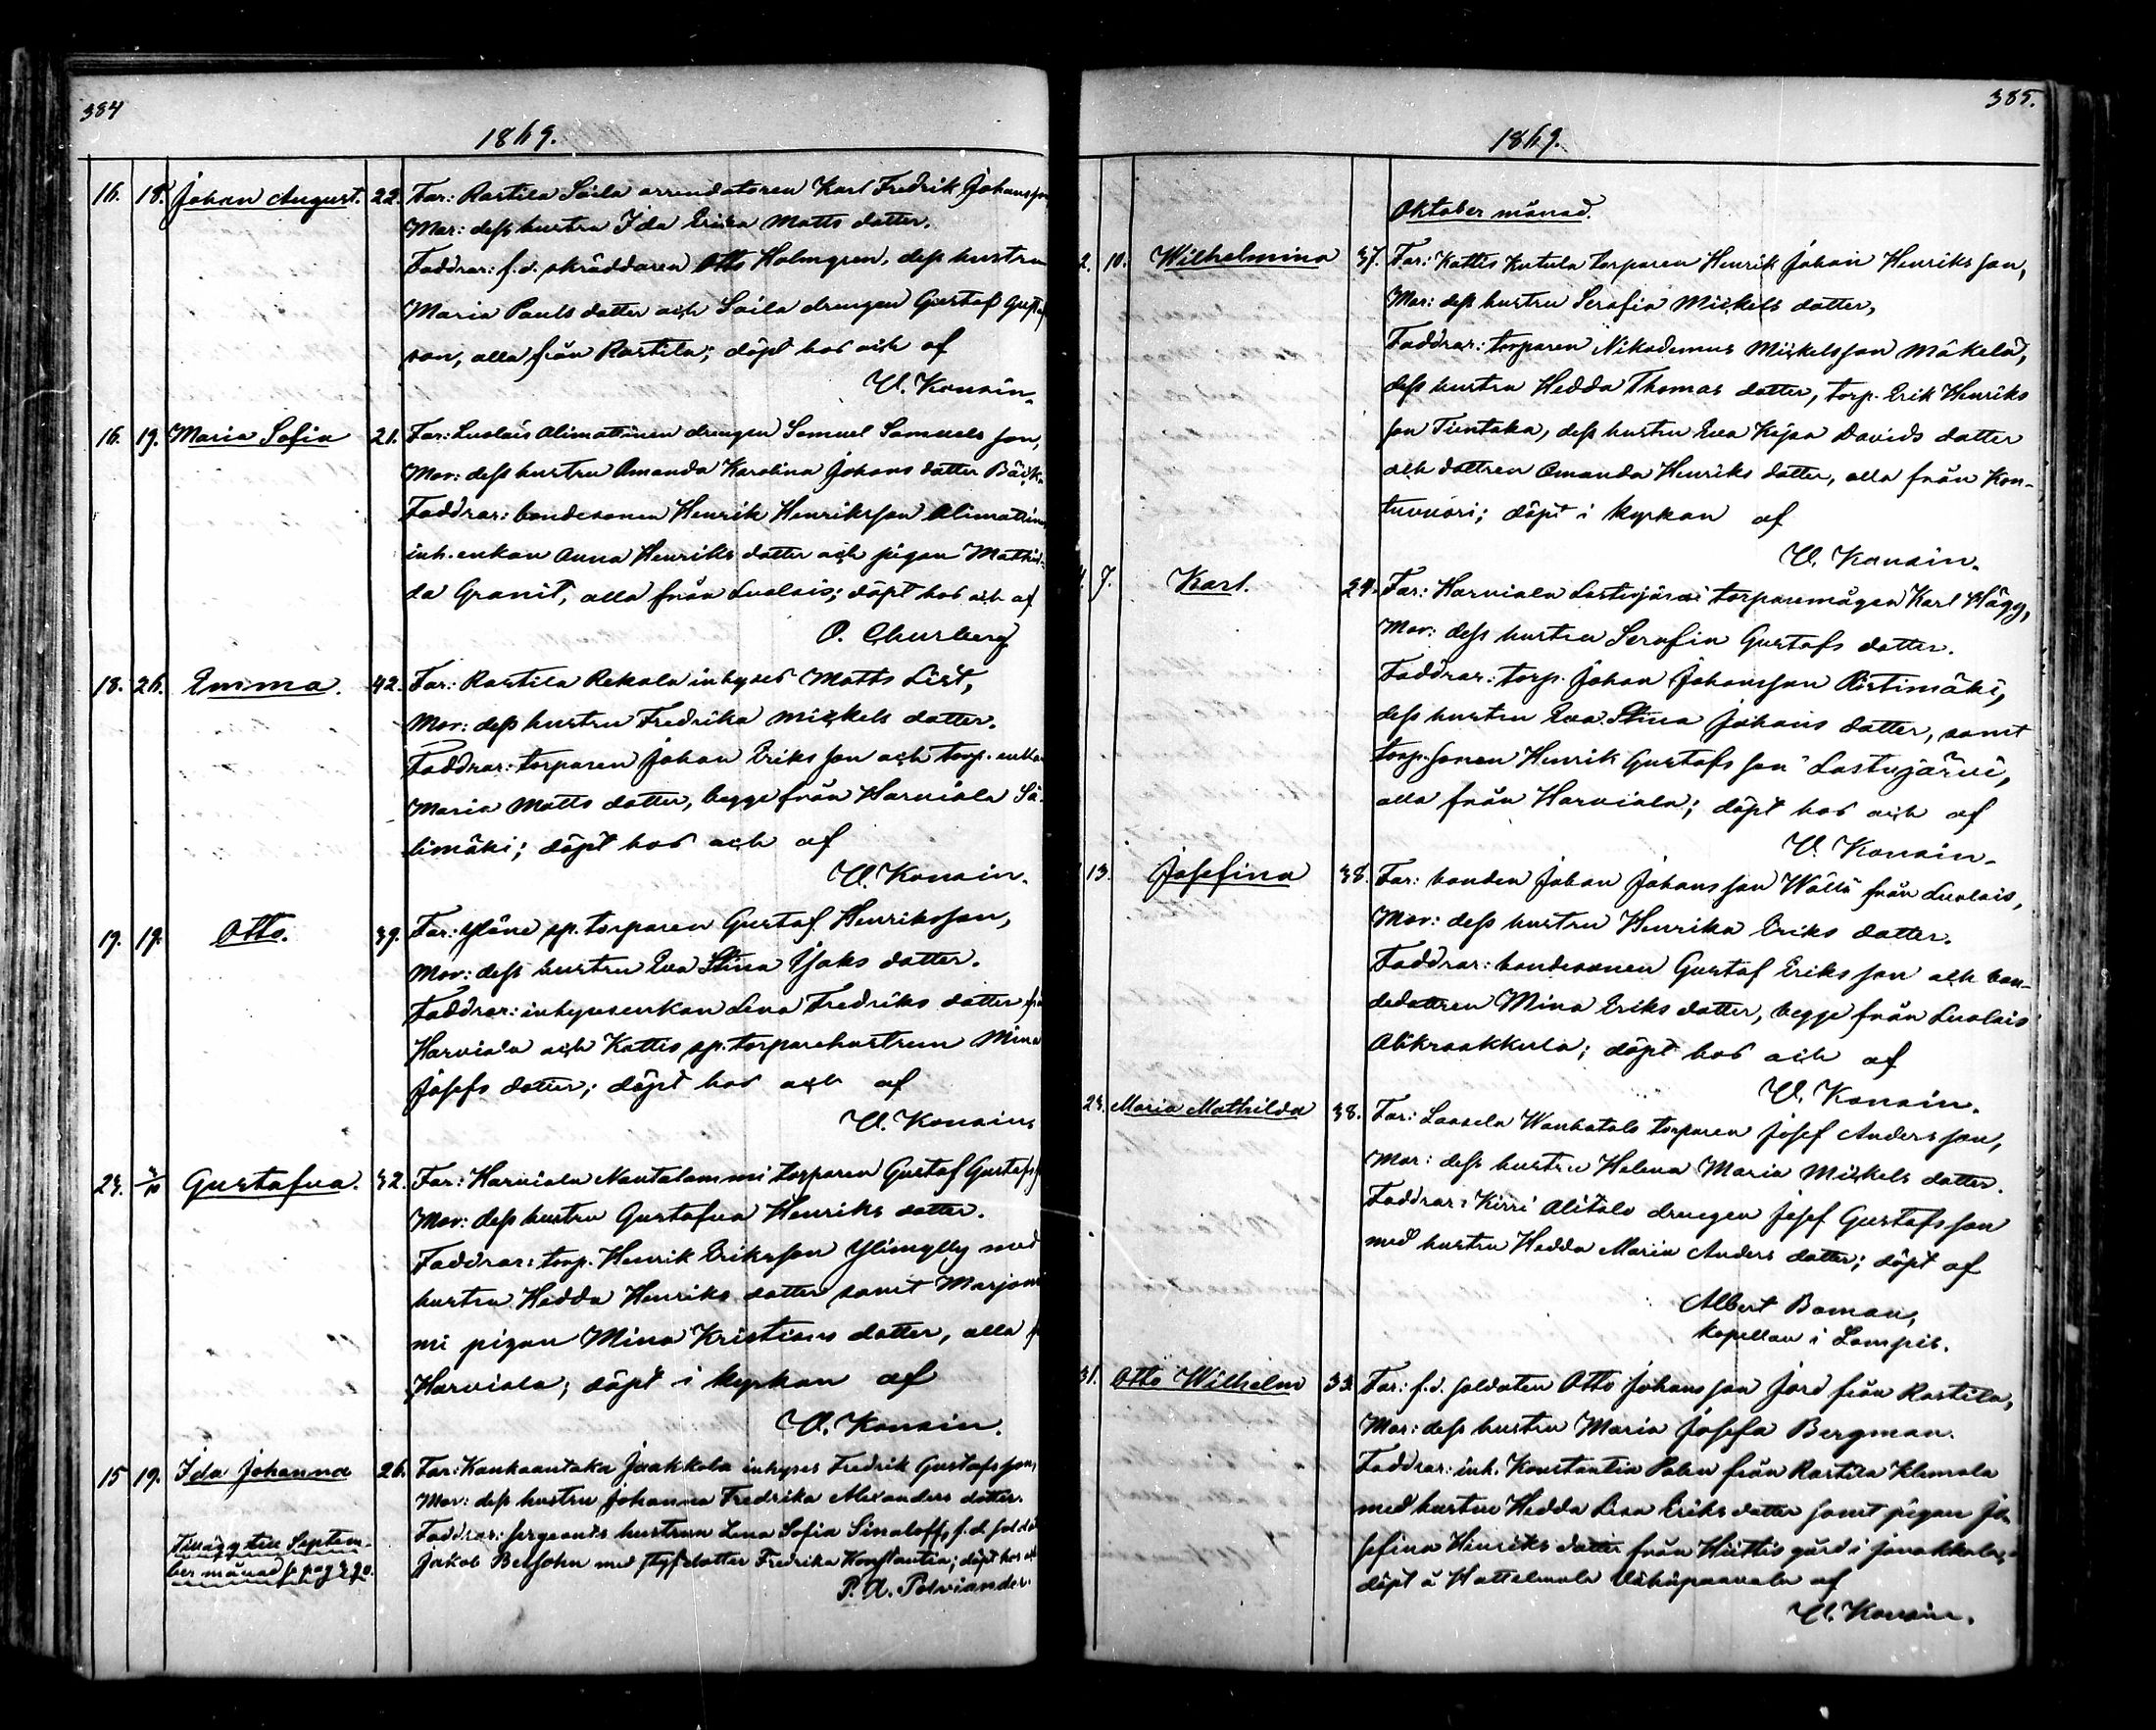 384
1869.
16. 18. Johan August. 22. Far: Rastila Saila arrendatoren Karl Fredrik Johansson
Mor: dess hustru Ida Erika Matts dotter.
Faddrar: f.d. skräddaren Otto Holmgren, dess hustru
Maria Pauls dotter och Saila drengen Gustaf Gustaf
son, alla från Rastila; döpt hos och af
V. Konsin.
16. 19. Maria Sofia 21. Far: Luolais Alimattinen drengen Samuel Samuels son,
Mor: dess hustru Amanda Karolina Johans dotter Bäck
Faddrar: bondesonen Henrik Henriksson Alimattinen
inh. enkan Anna Henriks dotter och pigan Mathil-
da Granit, alla från Luolais; döpt hos och af
O. Churberg
18. 26. Emma. 42. Far: Rastila Rekola inhyses Matts List,
Mor: dess hustru Fredrika Mickels dotter.
Faddrar: torparen Johan Eriks son och torp. enkan
Maria Matts dotter, begge från Harviala Sä-
limäki; döpt hos och af
V. Konsin.
19. 19. Otto. 39. Far: Yläne sp. torparen Gustaf Henriksson,
Mor: dess hustru Eva Stina Isaks dotter.
Faddrar: inhysesenkan Lena Fredriks dotter från
Harviala och Kattis sp. torparehustrun Mina
Josefs dotter; döpt hos och af
V. Konsin
23. 3/10 Gustafva. 32. Far: Harviala Nautalammi torparen Gustaf Gustafs
Mor: dess hustru Gustafva Henriks dotter.
Faddrar: torp. Henrik Eriksson Ylimylly med
hustru Hedda Henriks dotter samt Marjonie
mi pigan Mina Kristians dotter, alla fr
Harviala; döpt i kyrkan af
V. Konsin.
15 19. Ida Johanna 26. Far: Kankaantaka Jaakkola inhyses Fredrik Gustafs son,
Mor: dess hustru Johanna Fredrika Alexanders dotter.
Faddrar: sergeants hustrun Lena Sofia Sinaloff, f.d. soldat
Jakob Belsohn med styfdotter Fredrika Konstantia; döpt hos och
P. A. Polviander
Tillägg till Septem-
ber månad se pag 390.
385.
1869.
Oktober månad.
2. 10. Wilhelmina 37. Far: Kattis Kutula torparen Henrik Johan Henriks son,
Mor: dess hustru Serafia Mickels dotter,
Faddrar: torparen Nikodemus Mickelsson Mäkelä,
dess hustru Hedda Thomas dotter, torp. Erik Henriks
son Tiintaka, dess hustru Eva Kajsa Davids dotter
och dottren Amanda Henriks dotter, alla från Kon-
tuvuori; döpt i kyrkan af
V. Konsin.
7. Karl. 24. Far: Harviala Lastujärvi torparemågen Karl Hägg,
Mor: dess hustru Serafia Gustafs dotter.
Faddrar: torp. Johan Johansson Ristimäki,
dess hustru Eva Stina Johans dotter, samt
torp. sonen Henrik Gustafs son Lastujärvi,
alla från Harviala; döpt hos och af
V. Konsin.
13. Josefina 38. Far: bonden Johan Johans son Wälli från Luolais,
Mor: dess hustru Henrika Eriks dotter.
Faddrar: bondesonen Gustaf Eriks son och bon-
dedottren Mina Eriks dotter, begge från Luolais
Alikraakkula; döpt hos och af
V. Konsin.
23. Maria Mathilda 38. Far: Laasela Wanhatalo torparen Josef Anders son,
Mor: dess hustru Helena Maria Mickels dotter.
Faddrar: Kirri Alitalo drengen Josef Gustafs son
med hustru Hedda Maria Anders dotter; döpt af
Albert Boman,
kapellan i Lampis.
31. Otto Wilhelm 33. Far: f.d. soldaten Otto Johans son Jord från Rastila,
Mor: dess hustru Maria Josefa Bergman.
Faddrar: inh. Konstantin Palen från Rastila Klemola
med hustru Hedda Lisa Eriks dotter samt pigan Jo-
sefina Henriks dotter från Hiittis gård i Janakkala,
döpt å Hattelmala Vähäpaavola af
V. Konsin.